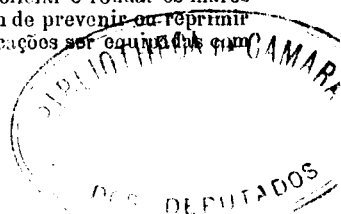 n de prevenir ou reprimir
cações ser equipadas com
BIBLIOTHECA DA CAMARA
DOS DEPUTADOS